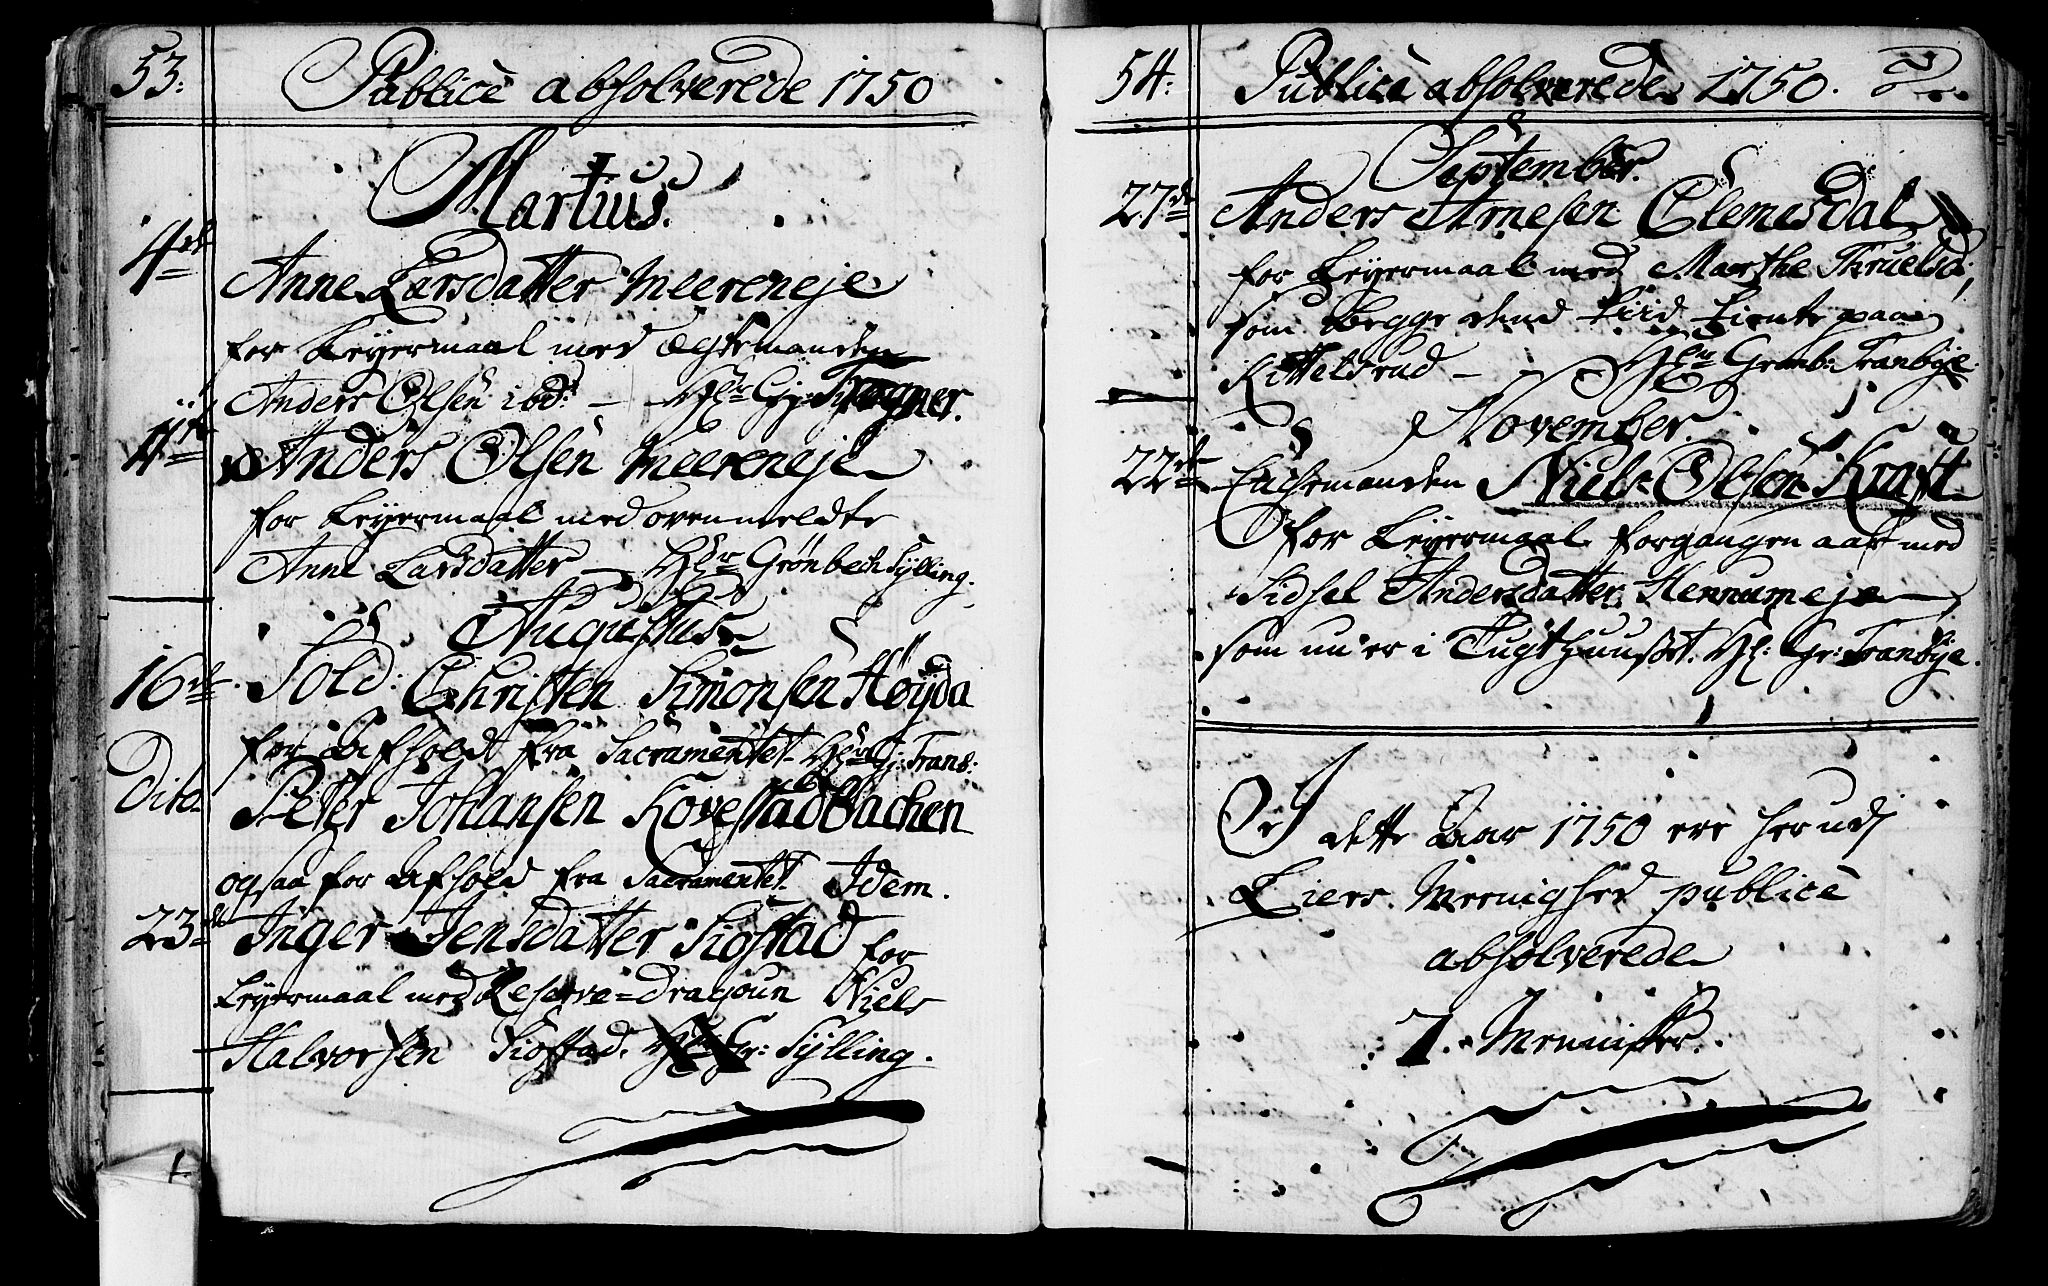 53:
Publicè absolverede 1750
Martius.
4de Anne Larsdatter Meereneje
for Leyermaal med Ægtemanden
Anders Olsen ibd: —
11te Anders Olsen Meereneje
for Leyermaal med ovenmeldte
Anne Larsdatter — Hr Grönbech Sylling.
Augustus
16de Sold: Christen Simonsen Höyda
for Afhold fra Sacramentet. Hr G: Tranb:
Dito Peter Johansen Kovestadbachen
ogsaa for Afhold fra Sacramentet. Idem.
23de Inger Jensdatter Siøstad for
Leyermaal med Reserve-Dragoun Niels
Halvorsen Siøstad. Hr Gr: Sylling.
54:
Publicè absolverede 1750.
September.
27de Anders Arnesen Clemesdal
for Leyermaal med Marthe Thruelsd;
som begge dend tiid tiente paa
Kittelsrud — Hr Grønb: Tranbye.
November.
22de Ægtemanden Niels Olsen Kraft
for Leyermaal forgangen aar med
Sidsel Andersdatter Hennumeje
som nu er i Tugthuuset. Hr: Gr: Tranbye.
I dette Aar 1750 ere herudj
Liers Meenighed publicè
absolverede
7. Mennisker.